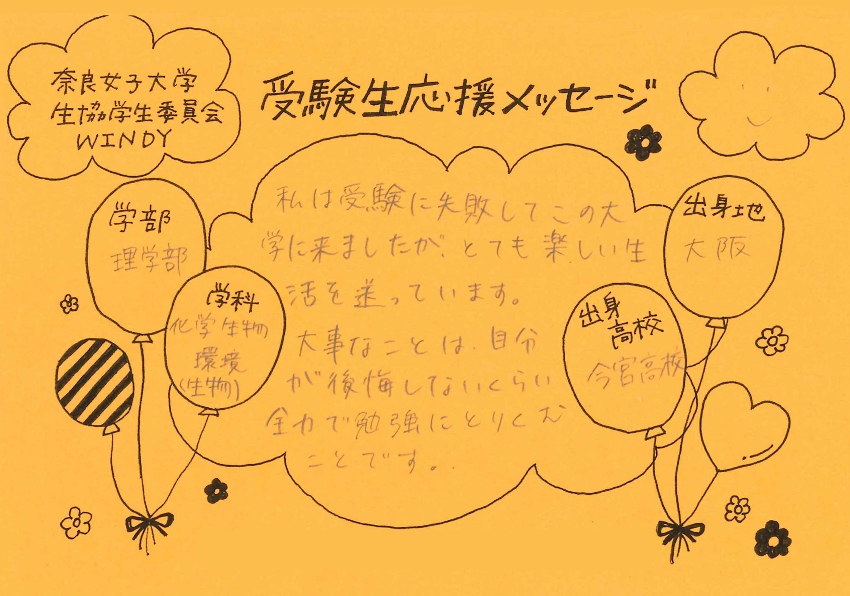 奈良女子大学
生協学生委員会
WINDY
受験生応援メッセージ
学部
理学部
学科
化学生物
環境
(生物)
私は受験に失敗してこの大
学に来ましたが、とても楽しい生
活を送っています。
大事なことは、自分
が後悔しないくらい
全力で勉強にとりくむ
ことです。
出身地
大阪
出身
高校
今宮高校